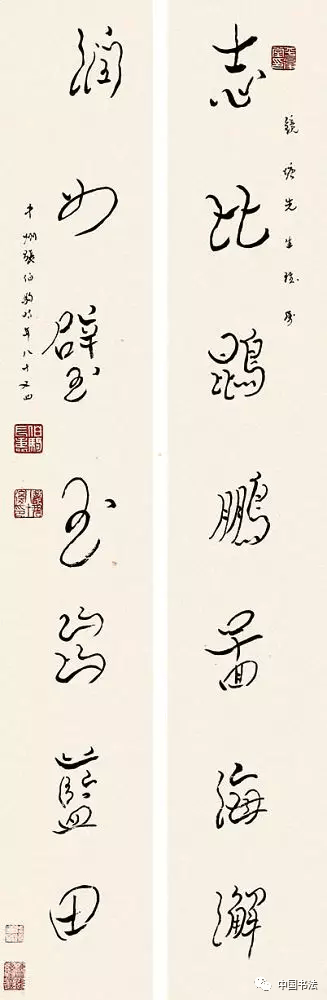 志比鵾鵬啚海澥
鏡塘先生雅屬
潤如璧玉出藍田
中州張伯駒時年八十又四
中国书法